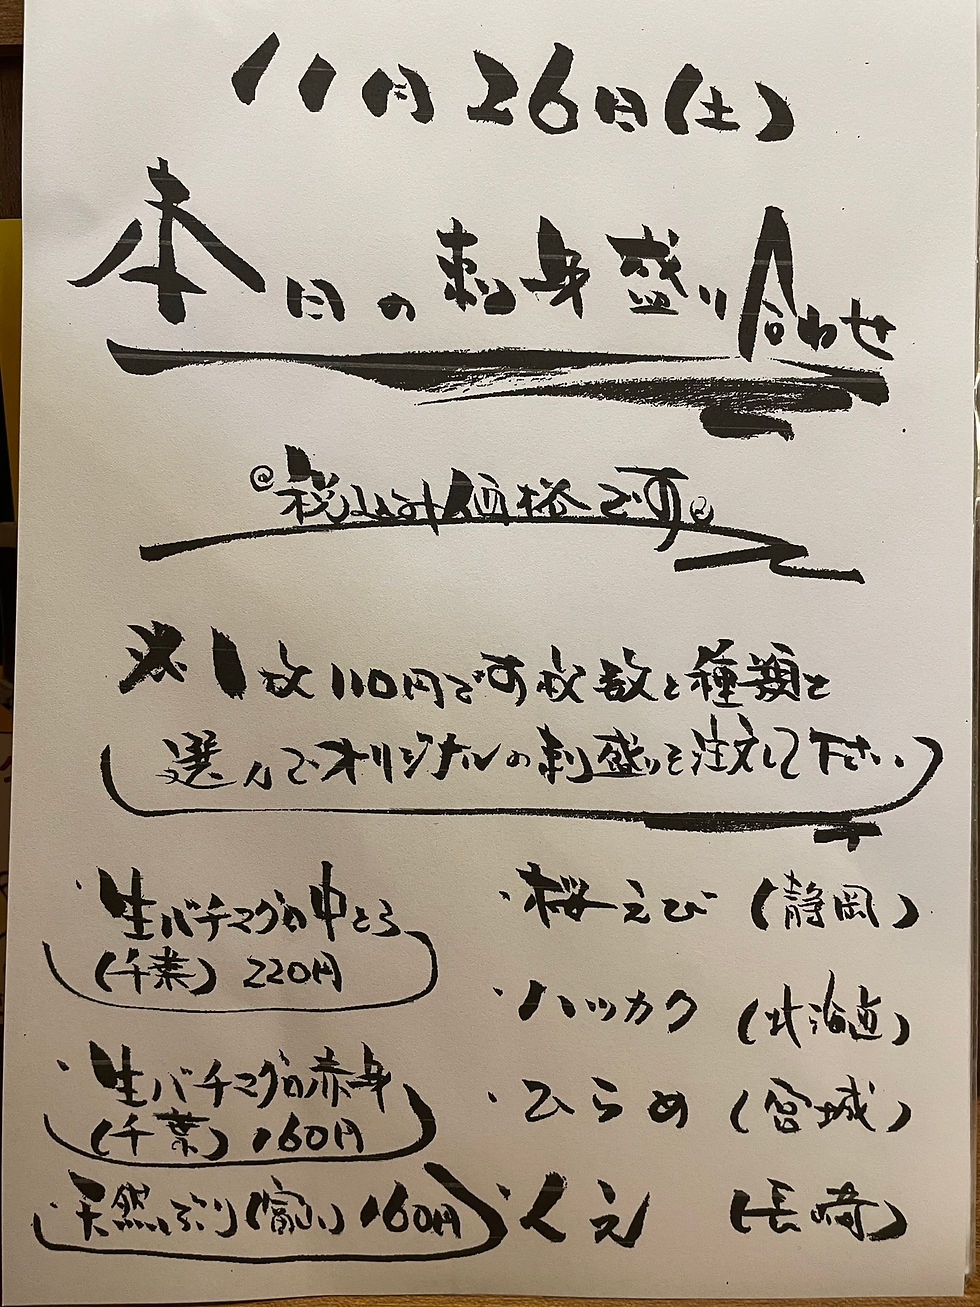 11月26日(土)
本日の刺身盛り合わせ
@税込み価格です。
※1枚110円です枚数と種類を
選んでオリジナルの刺盛りを注文して下さい
・生バチマグロ中とろ
(千葉) 220円
・生バチマグロ赤身
(千葉) 160円
・天然ぶり(富山) 160円
・桜えび (静岡)
・ハッカク (北海道)
・ひらめ (宮城)
・くえ (長崎)